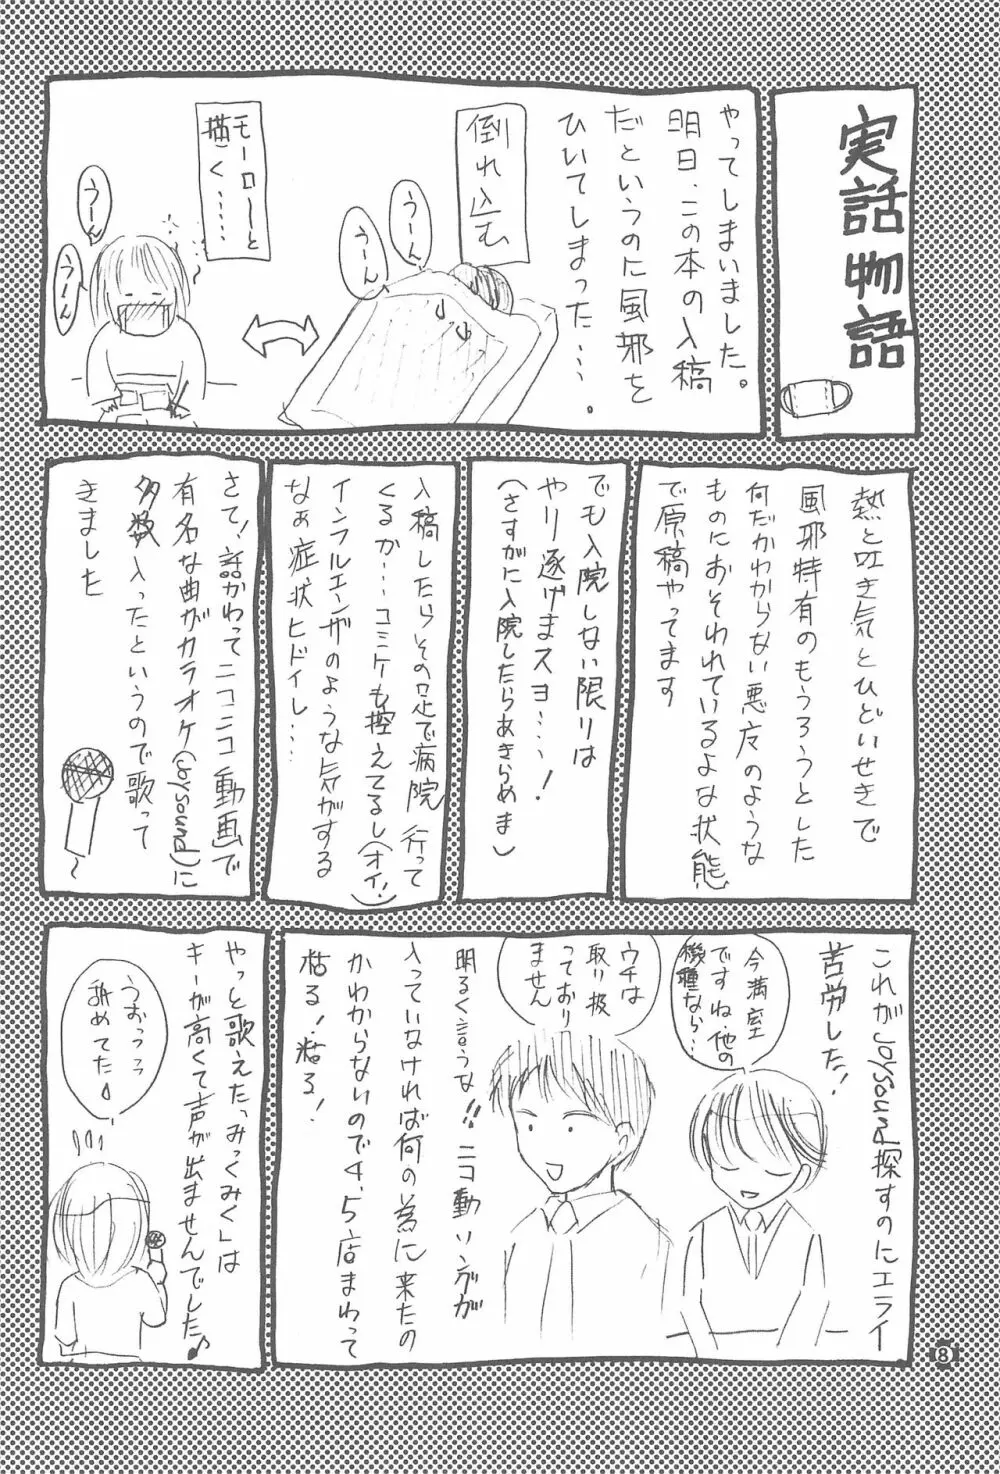 実話物語
やってしまいました。
明日、この本の入稿
だというのに風邪を
ひいてしまった…。
倒れ込む
うーん
うーん
モーローと
描く……
うーん
うーん
熱と吐き気とひどいせきで
風邪特有のもうろうとした
何だかわからない悪夜のような
ものにおそわれているよな状態
で原稿やってます
でも入院しない限りは
やり遂げまスヨ…！
(さすがに入院したらあきらめま)
入稿したらその足で病院行って
くるか…コミケも控えてるし(オイ!)
インフルエンザのような気がする
なぁ症状ヒドイし…
さて！話かわってニコニコ動画で
有名な曲がカラオケ(joysound)に
多数入ったというので歌って
きました
これがJoysound探すのにエライ
苦労した！
今満室
ですね、他の
機種なら…
ウチは
取り扱
っており
ません
明るく言うな!!ニコ動ソングが
入っていなければ何の為に来たの
かわからないので4、5店まわって
粘る！粘る！
やっと歌えた「みっくみく」は
キーが高くて声が出ませんでした♪
うおっっっ
舐めてた
8